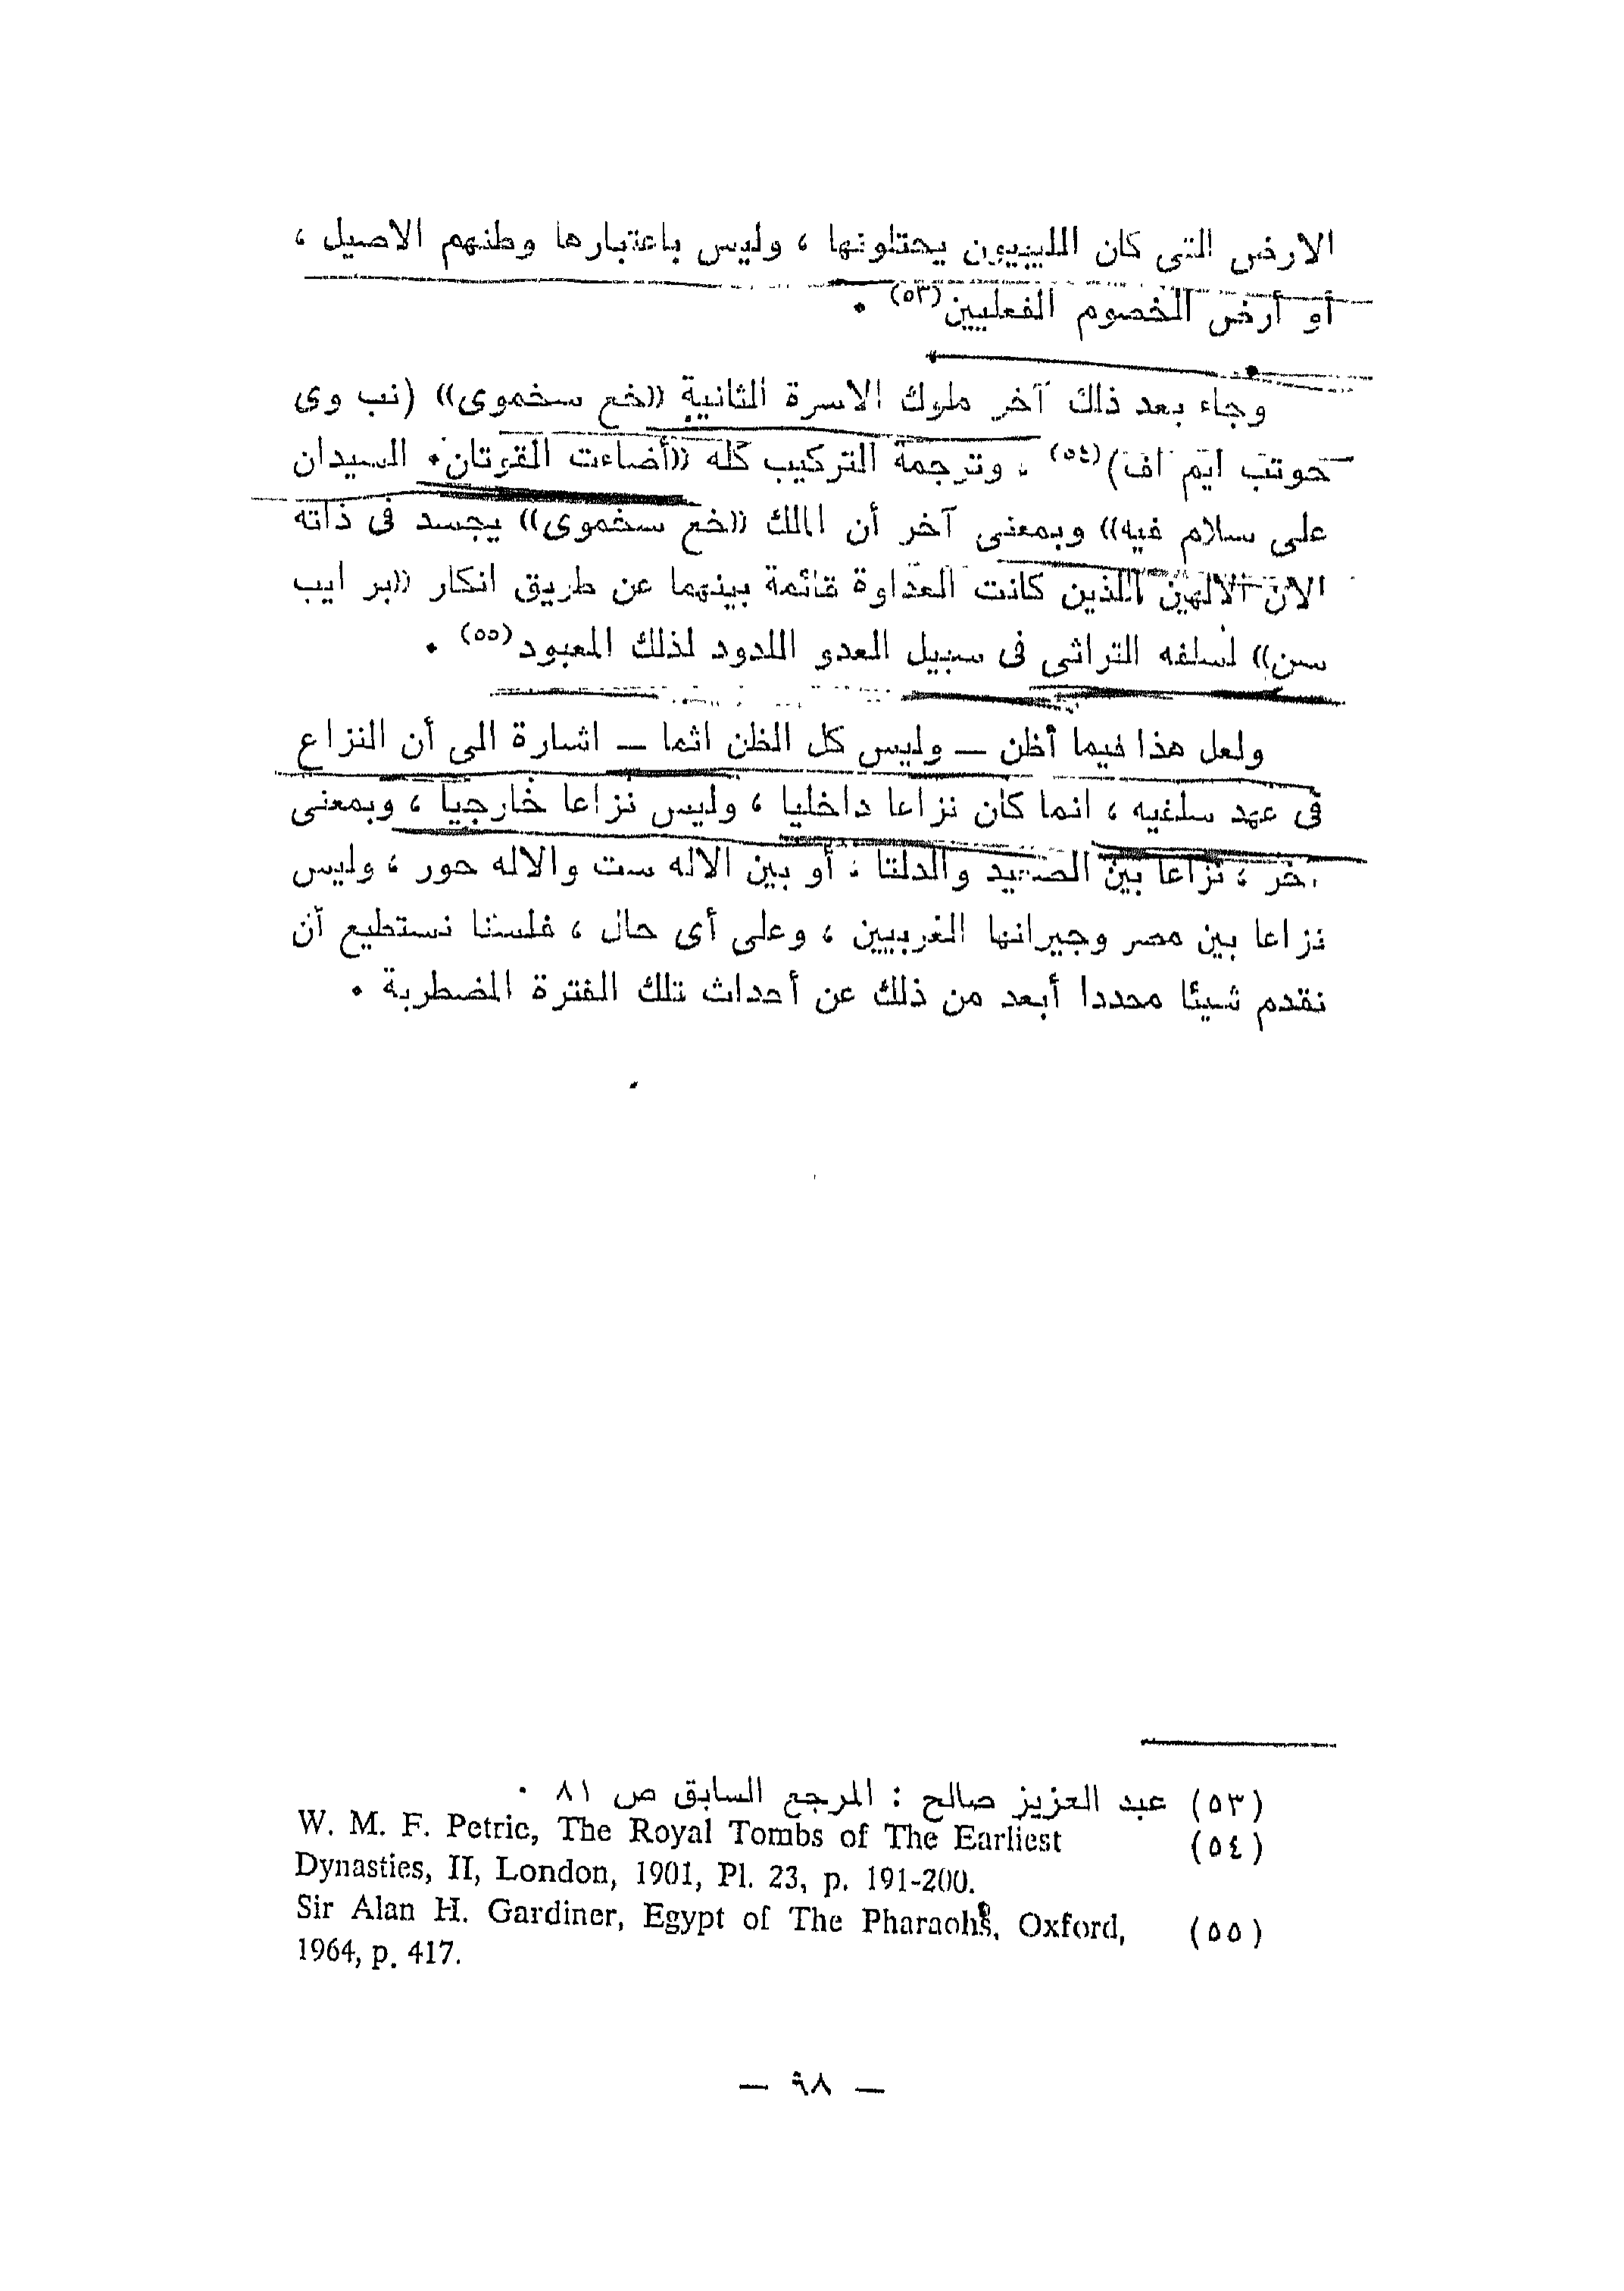 الارض التى كان الليبيون يحتلونها ، وليس باعتبارها وطنهم الاصيل ،
أو أرض الخصوم الفعليين(٥٣) ٠
وجاء بعد ذلك آخر ملوك الاسرة الثانية ((خع سخموى)) (نب وى
حوتب ايم اف)(٥٤) ، وترجمة التركيب كله ((أضاءت القوتان٠ السيدان
على سلام فيه)) وبمعنى آخر أن الملك ((خع سخموى)) يجسد فى ذاته
الان الالهين اللذين كانت العداوة قائمة بينهما عن طريق انكار ((بر ايب
سن)) لسلفه التراثى فى سبيل العدو اللدود لذلك المعبود(٥٥) ٠
ولعل هذا فيما أظن — وليس كل الظن اثما — اشارة الى أن النزاع
فى عهد سلفيه ، انما كان نزاعا داخليا ، وليس نزاعا خارجيا ، وبمعنى
آخر ، نزاعا بين الصعيد والدلتا ، أو بين الاله ست والاله حور ، وليس
نزاعا بين مصر وجيرانها الغربيين ، وعلى أى حال ، فلسنا نستطيع أن
نقدم شيئا محددا أبعد من ذلك عن أحداث تلك الفترة المضطربة ٠
(٥٣) عبد العزيز صالح : المرجع السابق ص ٨١ ٠
(٥٤) W. M. F. Petrie, The Royal Tombs of The Earliest
Dynasties, II, London, 1901, Pl. 23, p. 191-200.
(٥٥) Sir Alan H. Gardiner, Egypt of The Pharaohs, Oxford,
1964, p. 417.
— ٩٨ —